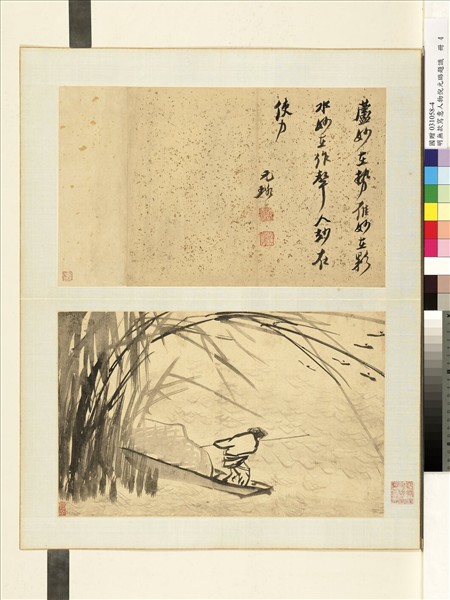 蘆妙在勢雁妙在影
水妙在作聲人妙在
使力
元璐
國贈 031058-4
明無款寫意人物倪元璐題識 冊 4